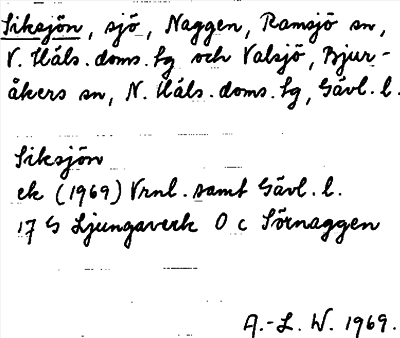 Siksjön, sjö, Naggen, Ramsjö sn,
V. Häls. doms. sg och Valsjö, Bjur-
åkers sn, N. Häls. doms. sg, Gävl. l.
Siksjön
ek (1969) Vrnl. samt Gävl. l.
17 G Ljungaverk O c Sörnaggen
A.-L. W. 1969.